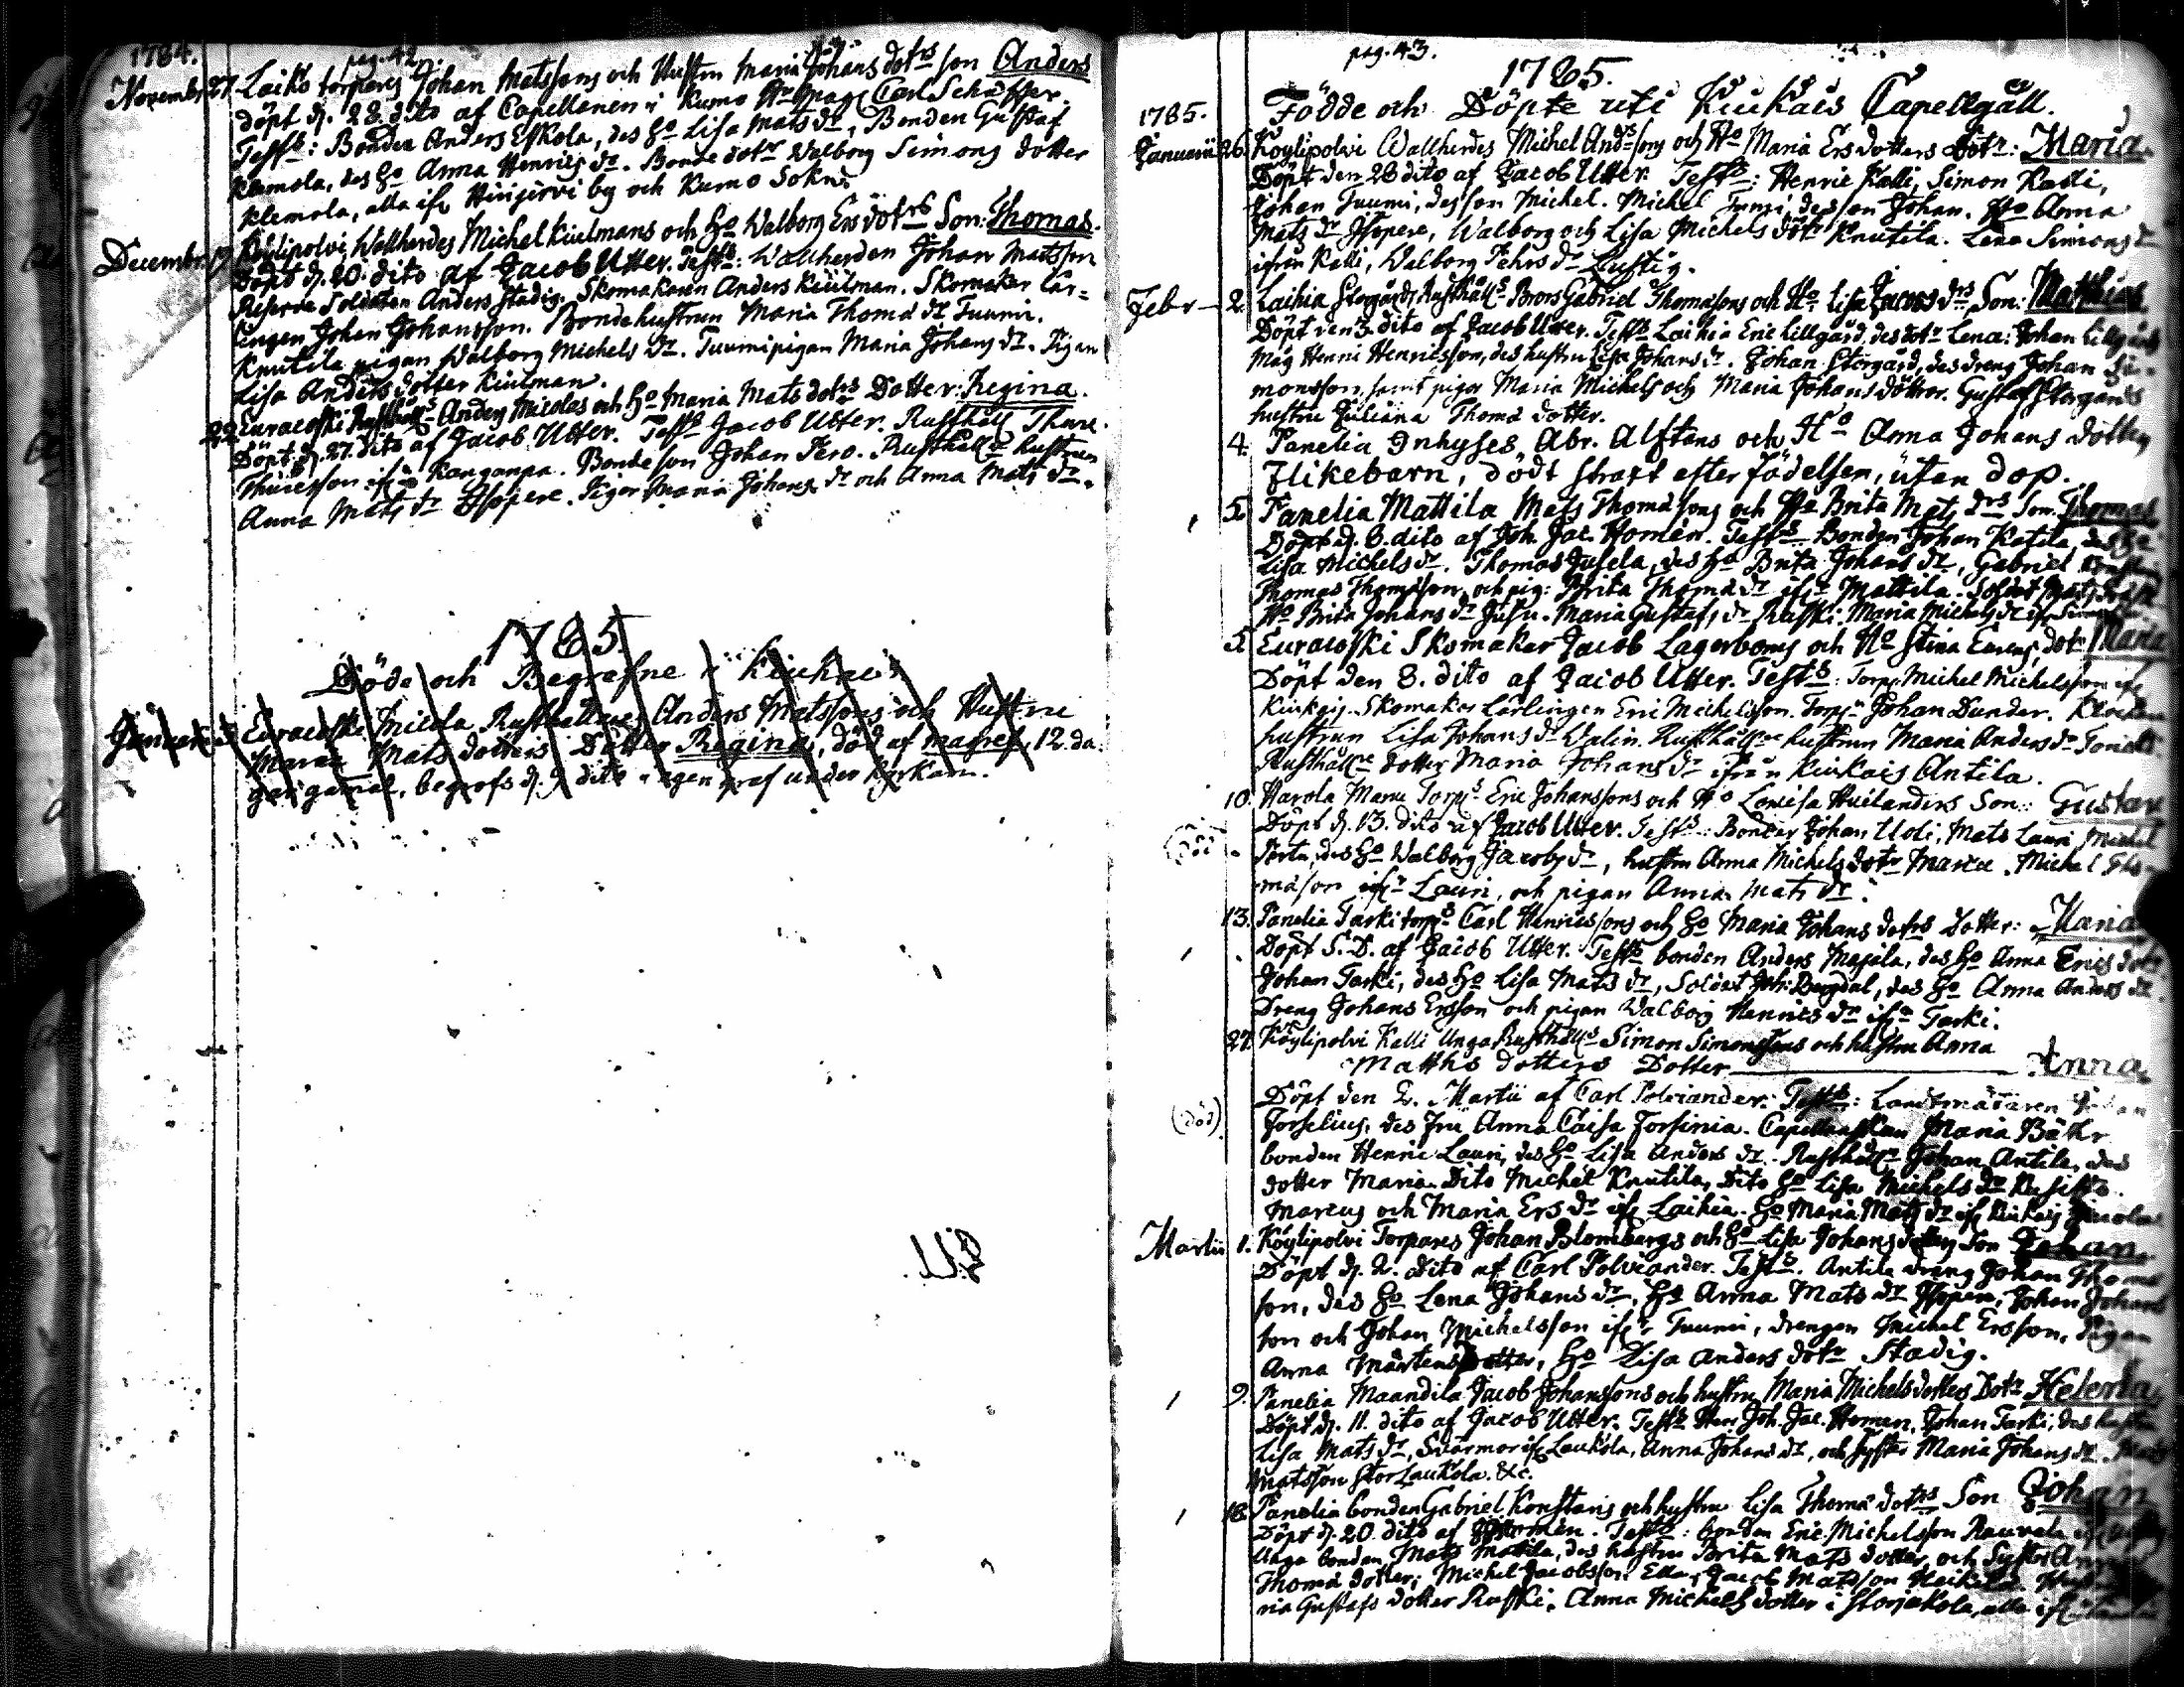 1784.
pag. 42.
Novembr. 27. Laiko torpares Johan Matssons och Hustrun Maria Johans dotrs son Anders
döpt d. 28. dito af Capellanen i Kumo Hr Mag. Carl Schäffer.
Testb: Bonden Anders Eskola, des Ho Lisa Mats dr, Bonden Gustaf
Klemola, des Ho Anna Henrics dr. Bonde dotr Walborg Simons dotter
Klemola, alla ifr Hinjärvi by och Kumo Sokn.
Decembr. 17. Köylipolvi Wallherdes Michel Kiulmans och Ho Walborg Ers dotrs Son: Thomas.
Döpt d. 20. dito af Jacob Utter. Testb: Wallherden Johan Matsson
Reserve Soldaten Anders Stadig. Skomakaren Anders Kiulman. Skomakar Lär=
lingen Johan Johansson. Bondehustrun Maria Thoma dr Tuumi.
Knutila pigan Walborg Michels dr. Tuumi pigan Maria Johans dr. Pigan
Lisa Anders dotter Kiulman.
22. Euracoski Rusthålls Anders Micolas och Ho Maria Mats dotrs Dotter: Regina.
Döpt d. 27. dito af Jacob Utter. Testb Jacob Utter. Rusthåll Thure
Thuresson ifrån Kanganpä. Bondeson Johan Tero. Rusthåll hustrun
Anna Mats dr Isopere. Pigor Maria Johans dr och Anna Mats dr.
1785
Döde och Begrafne i Kiukais
Januarii Euracoski Micola Rusthållares Anders Matssons och Hustru
Maria Mats dotters Dotter Regina, död af masref, 12. da:
gar gamal, begrofs d. 9 dito i egen graf under kyrkan.
pag. 43.
1785.
Födde och Döpte uti Kiukais Capellgäll.
1785.
Januarii 26. Köylipolvi Wallherdes Michel Andrssons och Ho Maria Ersdotters dotr: Maria
Döpt den 28 dito af Jacob Utter. Testb: Henric Kalli, Simon Kalli,
Johan Tuumi, des son Michel. Michel Tuumi, des son Johan. Ho Anna
Mats dr Isopere, Walborg och Lisa Michels dotr Knutila. Lena Simons dr
ifrån Kalli, Walborg Pehrs dr Lustig.
Febr 2. Laihia Storgårds Rusthålls Brors Gabriel Thomassons och Ho Lisa Jacobs drs Son: Matthias
Döpt den 3. dito af Jacob Utter. Testb Laihia Eric Lillgård, des dotr Lena: Johan Lillgårds
Måg Henric Henricsson, des hustru Lisa Johans dr. Johan Storgård, des dreng Johan Si-
monsson, samt pigor Maria Michels och Maria Johans döttror. Gustaf Storgårds
hustru Juliana Thoma dotter.
4. Panelia Inhyses Abr. Alftans och Ho Anna Johans dotters
Flikebarn, dödt straxt efter födelsen, utan dop.
5. Panelia Mattila Mats Thomasons och Ho Brita Mats drs Son. Thomas
Döpt d. 8. dito af Joh. Jac. Homén. Testb Bonden Johan Katila, des Ho
Lisa Michels dr. Thomas Jusela, des Ho Brita Johans dr, Gabriel
Thomas Thomasson, och pig: Brita Thoma dr ifr Mattila. Soldat
Ho Brita Johans dr Jusu. Maria Gustafs dr Ruski. Maria Michels dr ifr
5. Euracoski Skomakar Jacob Lagerboms och Ho Stina dotr Maria
Döpt den 8. dito af Jacob Utter. Testb: Torp. Michel Michelsson ifr
Kiukais. Skomakar Lärlingen Eric Michelsson. Torpn Johan Dunder.
hustrun Lisa Johans dr Walin. Rusthåll hustrun Maria Anders dr
Rusthålls dotter Maria Johans dr ifrån Kiukais Antila.
10. Harola Marcu Torps Eric Johanssons och Ho Lovisa Huilanders Son: Gustav
Döpt d. 13. dito af Jacob Utter. Testb: Bonder Johan Uoti, Mats Lauri, Michel
Perta, des Ho Walborg Jacobs dr, hustru Anna Michels dotr Marcu. Michel Tho-
masson ifrn Lauri, och pigan Anna Mats dr.
13. Panelia Tarki torps Carl Henricssons och Ho Maria Johans dotrs Dotter: Maria
Döpt S. D. af Jacob Utter. Testb bonden Anders Majala, des Ho Anna Erics dotr
Johan Tarki, des Ho Lisa Mats dr, Soldat Joh: Bergdal, des Ho Anna Anders dr
Dreng Johans Ersson och pigan Walborg Henrics dr ifrn Tarki.
27. Köylipolvi Kalli Unga Rusthålls Simon Simonssons och hustru Anna
Matths dotters Dotter Anna
(död)
Döpt den 2. Martii af Carl Polviander. Testb: Landtmätaren
Forselius, des Fru Anna Caisa Forsinia. Capellanskan Maria Bäckr
bonden Henric Lauri, des Ho Lisa Anders dr. Rusthåll Johan Antila, des
dotter Maria. Dito Michel Knutila, Dito Ho Lisa Michels dr
Marcus och Maria Ers dr ifr Laihia. Ho Maria Mats dr ifr Kiukais
Martii 1. Köylipolvi Torpares Johan Blombergs och Ho Lisa Johans dotters Son Johan
Döpt d. 2. dito af Carl Polviander. Testb. Antila dreng Johan Thomas
son, des Ho Lena Johans dr, Ho Anna Mats dr Isopere, Johan Johans
son och Johan Michelsson ifrn Tuumi, drengen Michel Ersson, Pigan
Anna Mårtens dotter, Ho Lisa Anders dotr Stadig.
9. Panelia Maandila Jacob Johanssons och hustru Maria Michelsdotters Dotr Helena
Döpt d. 11. dito af Jacob Utter. Testb Herr Joh. Jac. Homen, Johan Tarki, des hustru
Lisa Mats dr, Svärmor ifr Laukola, Anna Johans dr, och Syster Maria Johans dr.
Matsson StorLaukola. &c.
18. Panelia bonden Gabriel Konstaris och hustru Lisa Thoma dotrs Son Johan
Döpt d. 20. dito af Homén. Testb: bonden Eric Michelsson Rauvala
Unga bonden Mats Mattila, des hustru Brita Mats dotter, och Syster
Thoma dotter; Michel Jacobsson Ella, Jacob Matsson Heikkilä.
ria Gustafs dotter Ruski, Anna Michels dotter i Storjakola, alla ifr